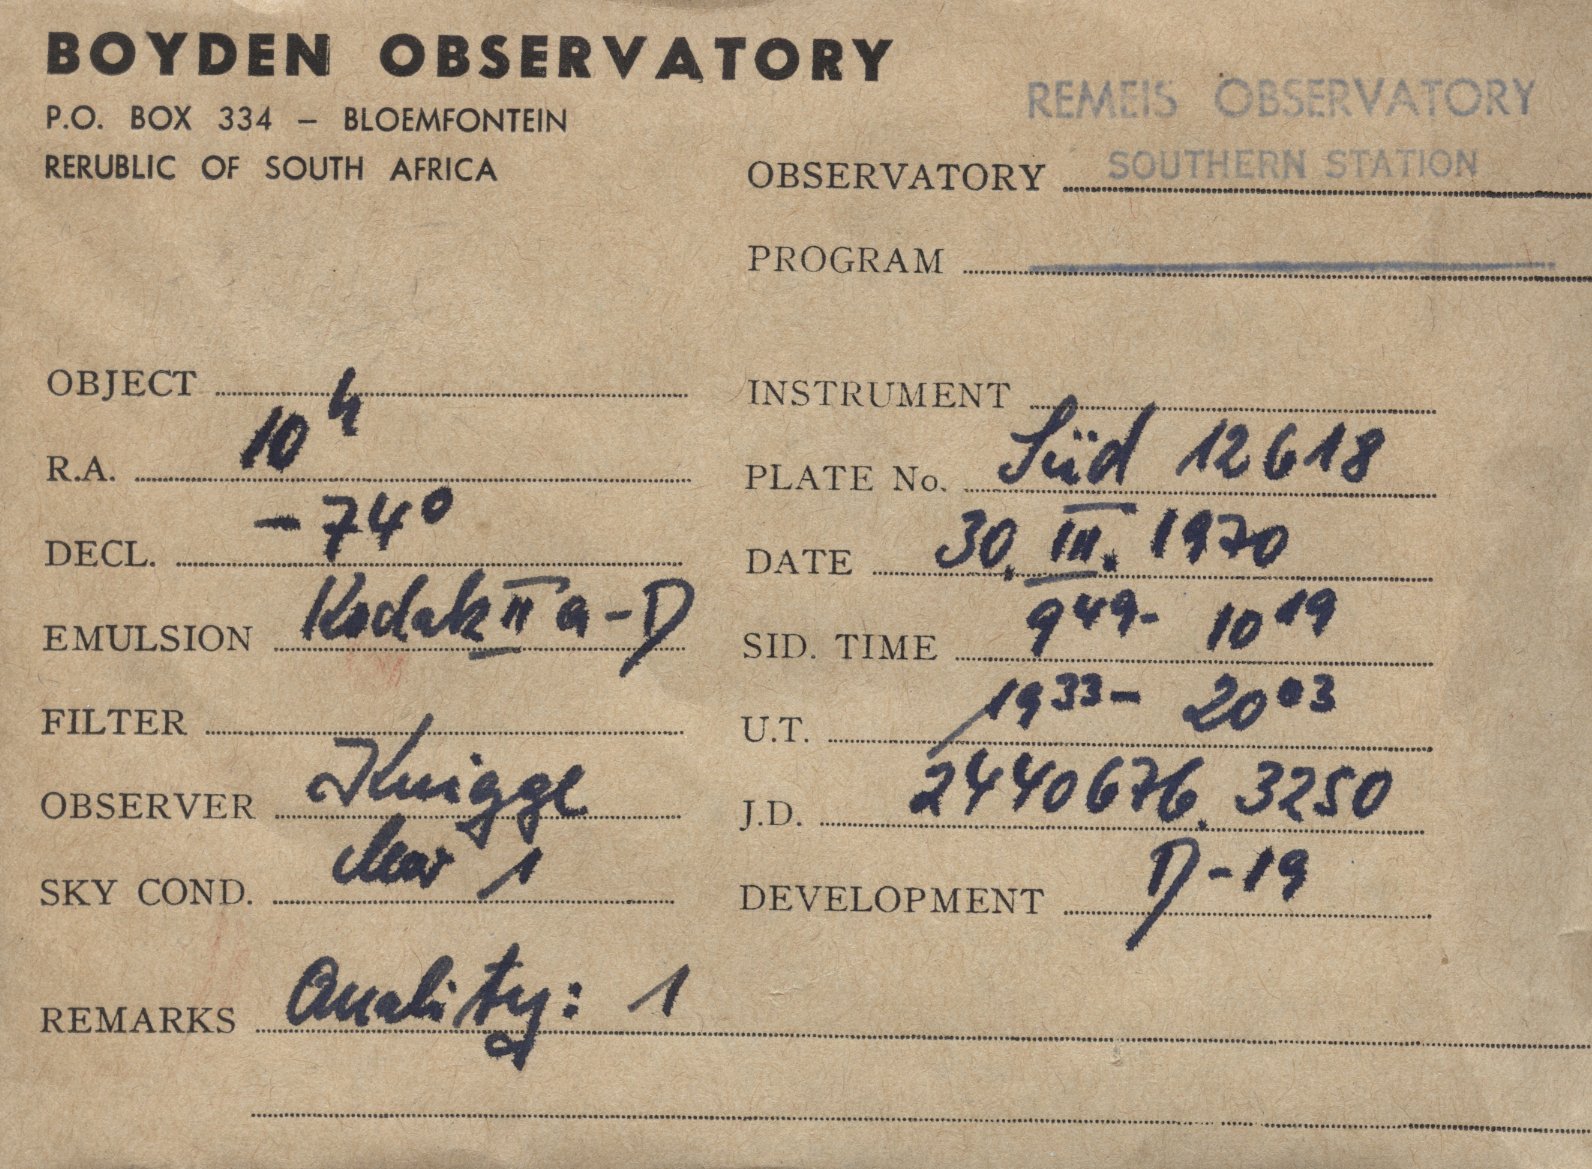 BOYDEN OBSERVATORY
P.O. BOX 334 – BLOEMFONTEIN
RERUBLIC OF SOUTH AFRICA
REMEIS OBSERVATORY
OBSERVATORY SOUTHERN STATION
PROGRAM
OBJECT
R.A. 10h
DECL. -74°
EMULSION Kodak II a-D
FILTER
OBSERVER Knigge
SKY COND. clear 1
INSTRUMENT
PLATE No. Süd 12618
DATE 30. III. 1970
SID. TIME 9 49 - 10 19
U.T. 19 33 - 20 03
J.D. 2440676.3250
DEVELOPMENT D-19
REMARKS Quality: 1